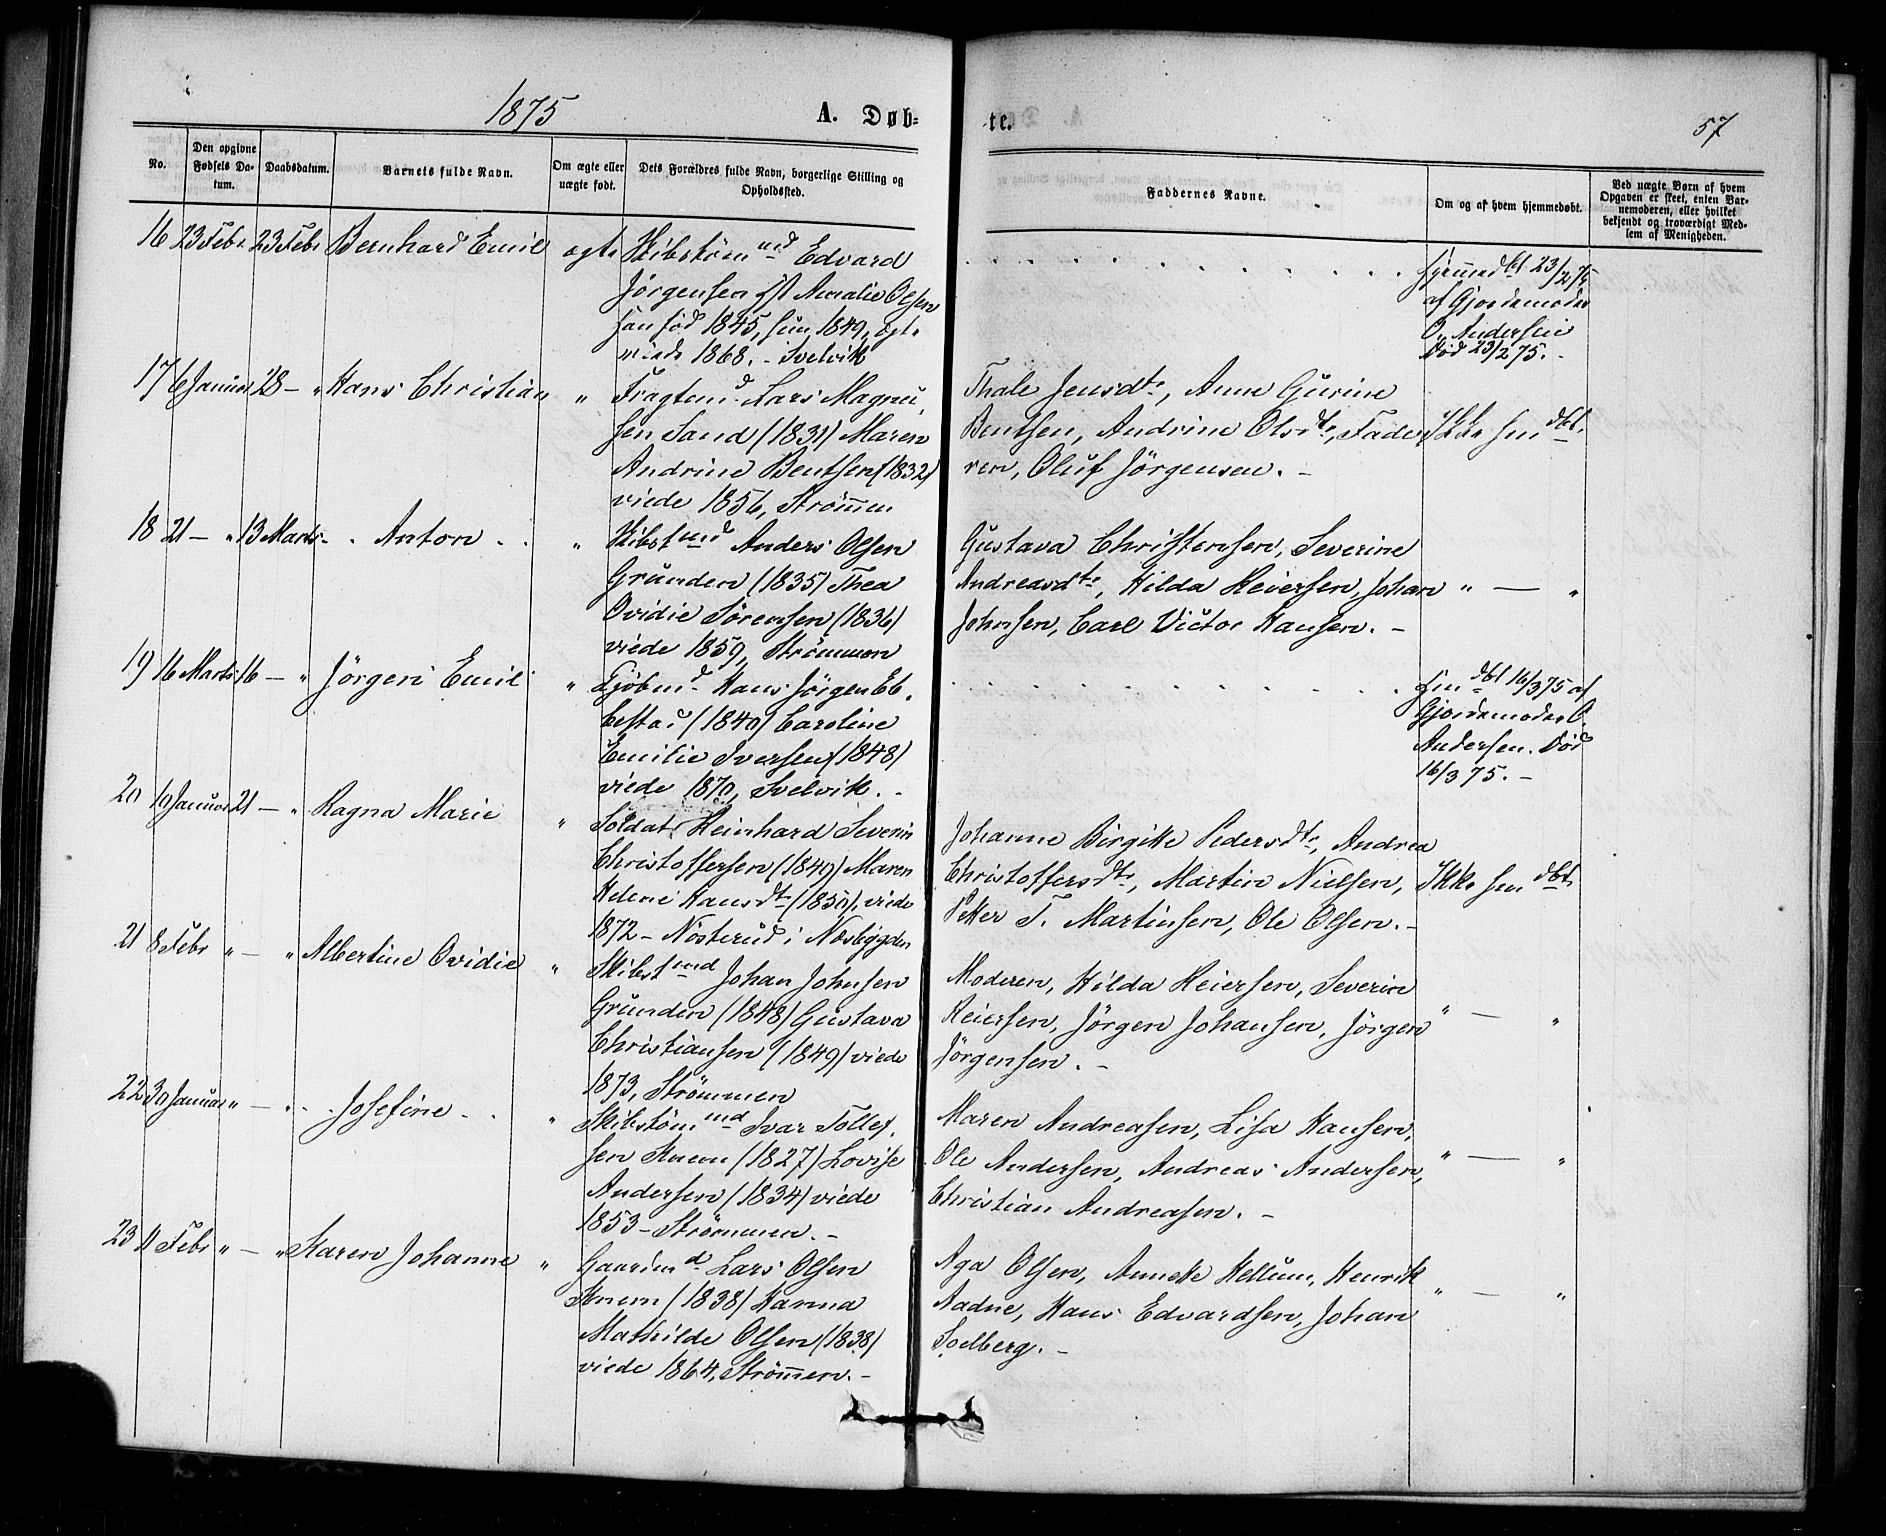 1875
A. Døb-
te.
57
No.
Den opgivne Fødsels Da-tum.
Daabsdatum.
Barnets fulde Navn.
Om ægte eller uægte født.
Dets Forældres fulde Navn, borgerlige Stilling og Opholdssted.
Faddernes Navne.
Om og af hvem hjemmedøbt.
Ved uægte Børn af hvem Opgaven er skeet, enten Bar-nemoderen, eller hvilket bekjendt og troværdigt Med-lem af Menigheden.
16 23 Febr 23 Febr Bernhard Emil ægte Skibstømmd Edvard
Jörgensen og Amalie Olsen
han fød 1845, hun 1849, ægte
viede 1868. - Svelvik
hjemmedbt 23/2 75
af Gjordemoder
O. Andersen
Död 23/2 75. -
17 6 Januar 28 - " Hans Christian " Fragtemd Lars Magnu,
sen Sand (1831) Maren
Andrine Bentsen (1832)
viede 1856, Strømmen
Thale Jensdtr, Anne Gurine
Bentsen, Andrine Olsdtr, Fade,
ren, Oluf Jörgensen. -
Ikke hmdbt.
18 21 - " 13 Marts - Anton " Skibstmd Anders Olsen
Grunden (1835) Thea
Ovidie Sörensen (1836)
viede 1859, Strømmen
Gustava Christensen, Severine
Andreasdtr, Hilda Reiersen, Johan
Johnsen, Carl Victor Hansen. -
" — "
19 16 Marts 16 - " Jörgen Emil " Kjöbmd Hans Jörgen Eb,
bestad (1840) Caroline
Emilie Iversen (1848)
viede 1870, Svelvik. -
hmdbt 16/3 75 af
Gjordemoder O.
Andersen. Död
16/3 75. -
20 10 Januar 21 - " Ragna Marie " Soldat Reinhard Severin
Christoffersen (1849) Maren
Helene Hansdtr (1850), viede
1872 - Nösterud i Nesbygden
Johanne Birgitte Pedersdtr, Andrea
Christoffersdtr, Martin Nielsen,
Petter T. Martinsen, Ole Olsen. -
Ikke hmdbt.
21 8 Febr " - " Albertine Ovidie " Skibstmd Johan Johnsen
Grunden (1848) Gustava
Christiansen (1849) viede
1873, Strömmen
Moderen, Hilda Reiersen, Severin
Reiersen, Jörgen Johansen, Jörgen
Jörgensen. -
" — "
22 30 Januar " - " Josefine " Skibstømmd Ivar Tollef,
sen Knem (1827) Lovise
Andersen (1834) viede
1853 - Strömmen. -
Maren Andreasen, Lisa Hansen,
Ole Andersen, Andreas Andersen,
Christian Andreasen. -
" — "
23 11 Febr " - " Karen Johanne " Gaardmd Lars Olsen
Knem (1838) Hanna
Mathilde Olsen (1838)
viede 1864, Strömmen. -
Aga Olsen, Annette Hellum, Henrik
Aadne, Hans Edvardsen, Johan
Solberg. -
" — "